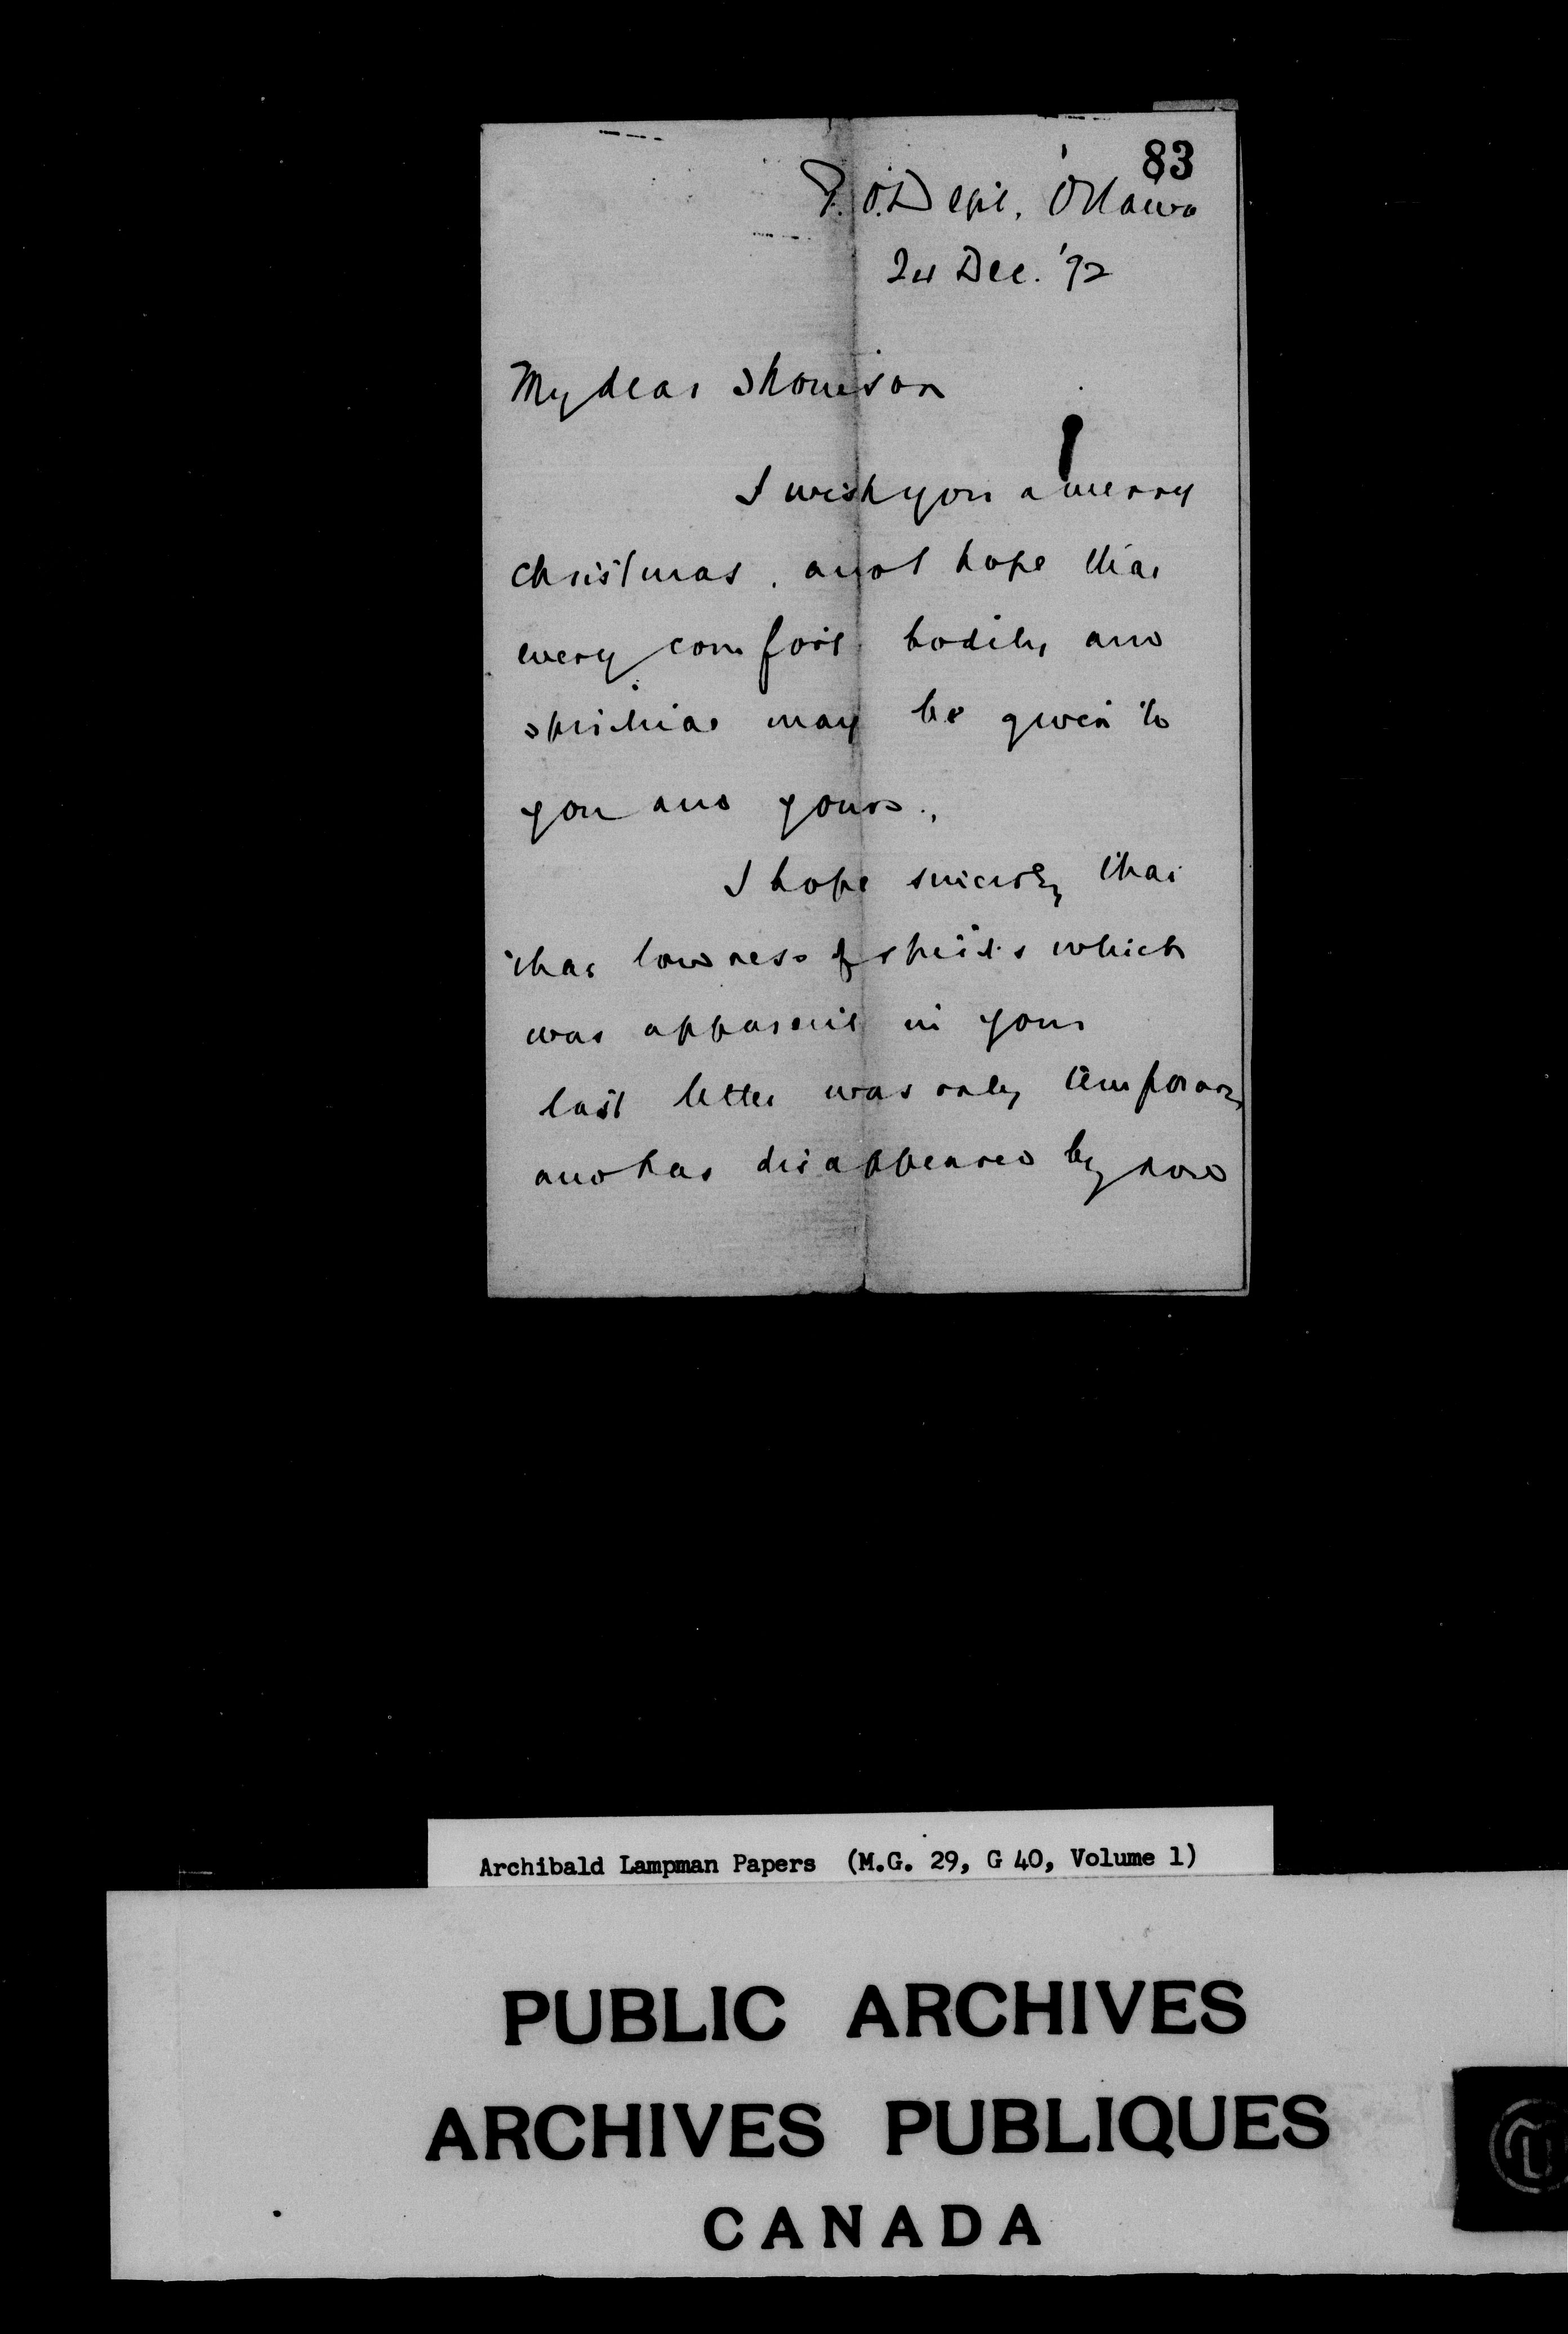 83
P.O. Dept, Ottawa
24 Dec. '92
My dear Thomson
I wish you a merry
christmas, and hope that
every comfort bodily and
spiritual may be given to
you and yours.,
I hope sincerely that
that lowness of spirits which
was apparent in your
last letter was only temporary
and has disappeared by now
Archibald Lampman Papers (M.G. 29, G 40, Volume 1)
PUBLIC ARCHIVES
ARCHIVES PUBLIQUES
CANADA